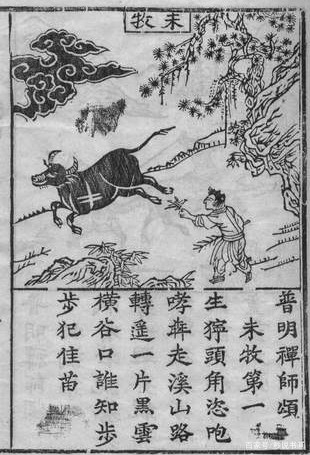 未牧
普明禪師頌
未牧第一
生獰頭角恣咆
哮犇走溪山路
轉遙一片黑雲
橫谷口誰知步
步犯佳苗